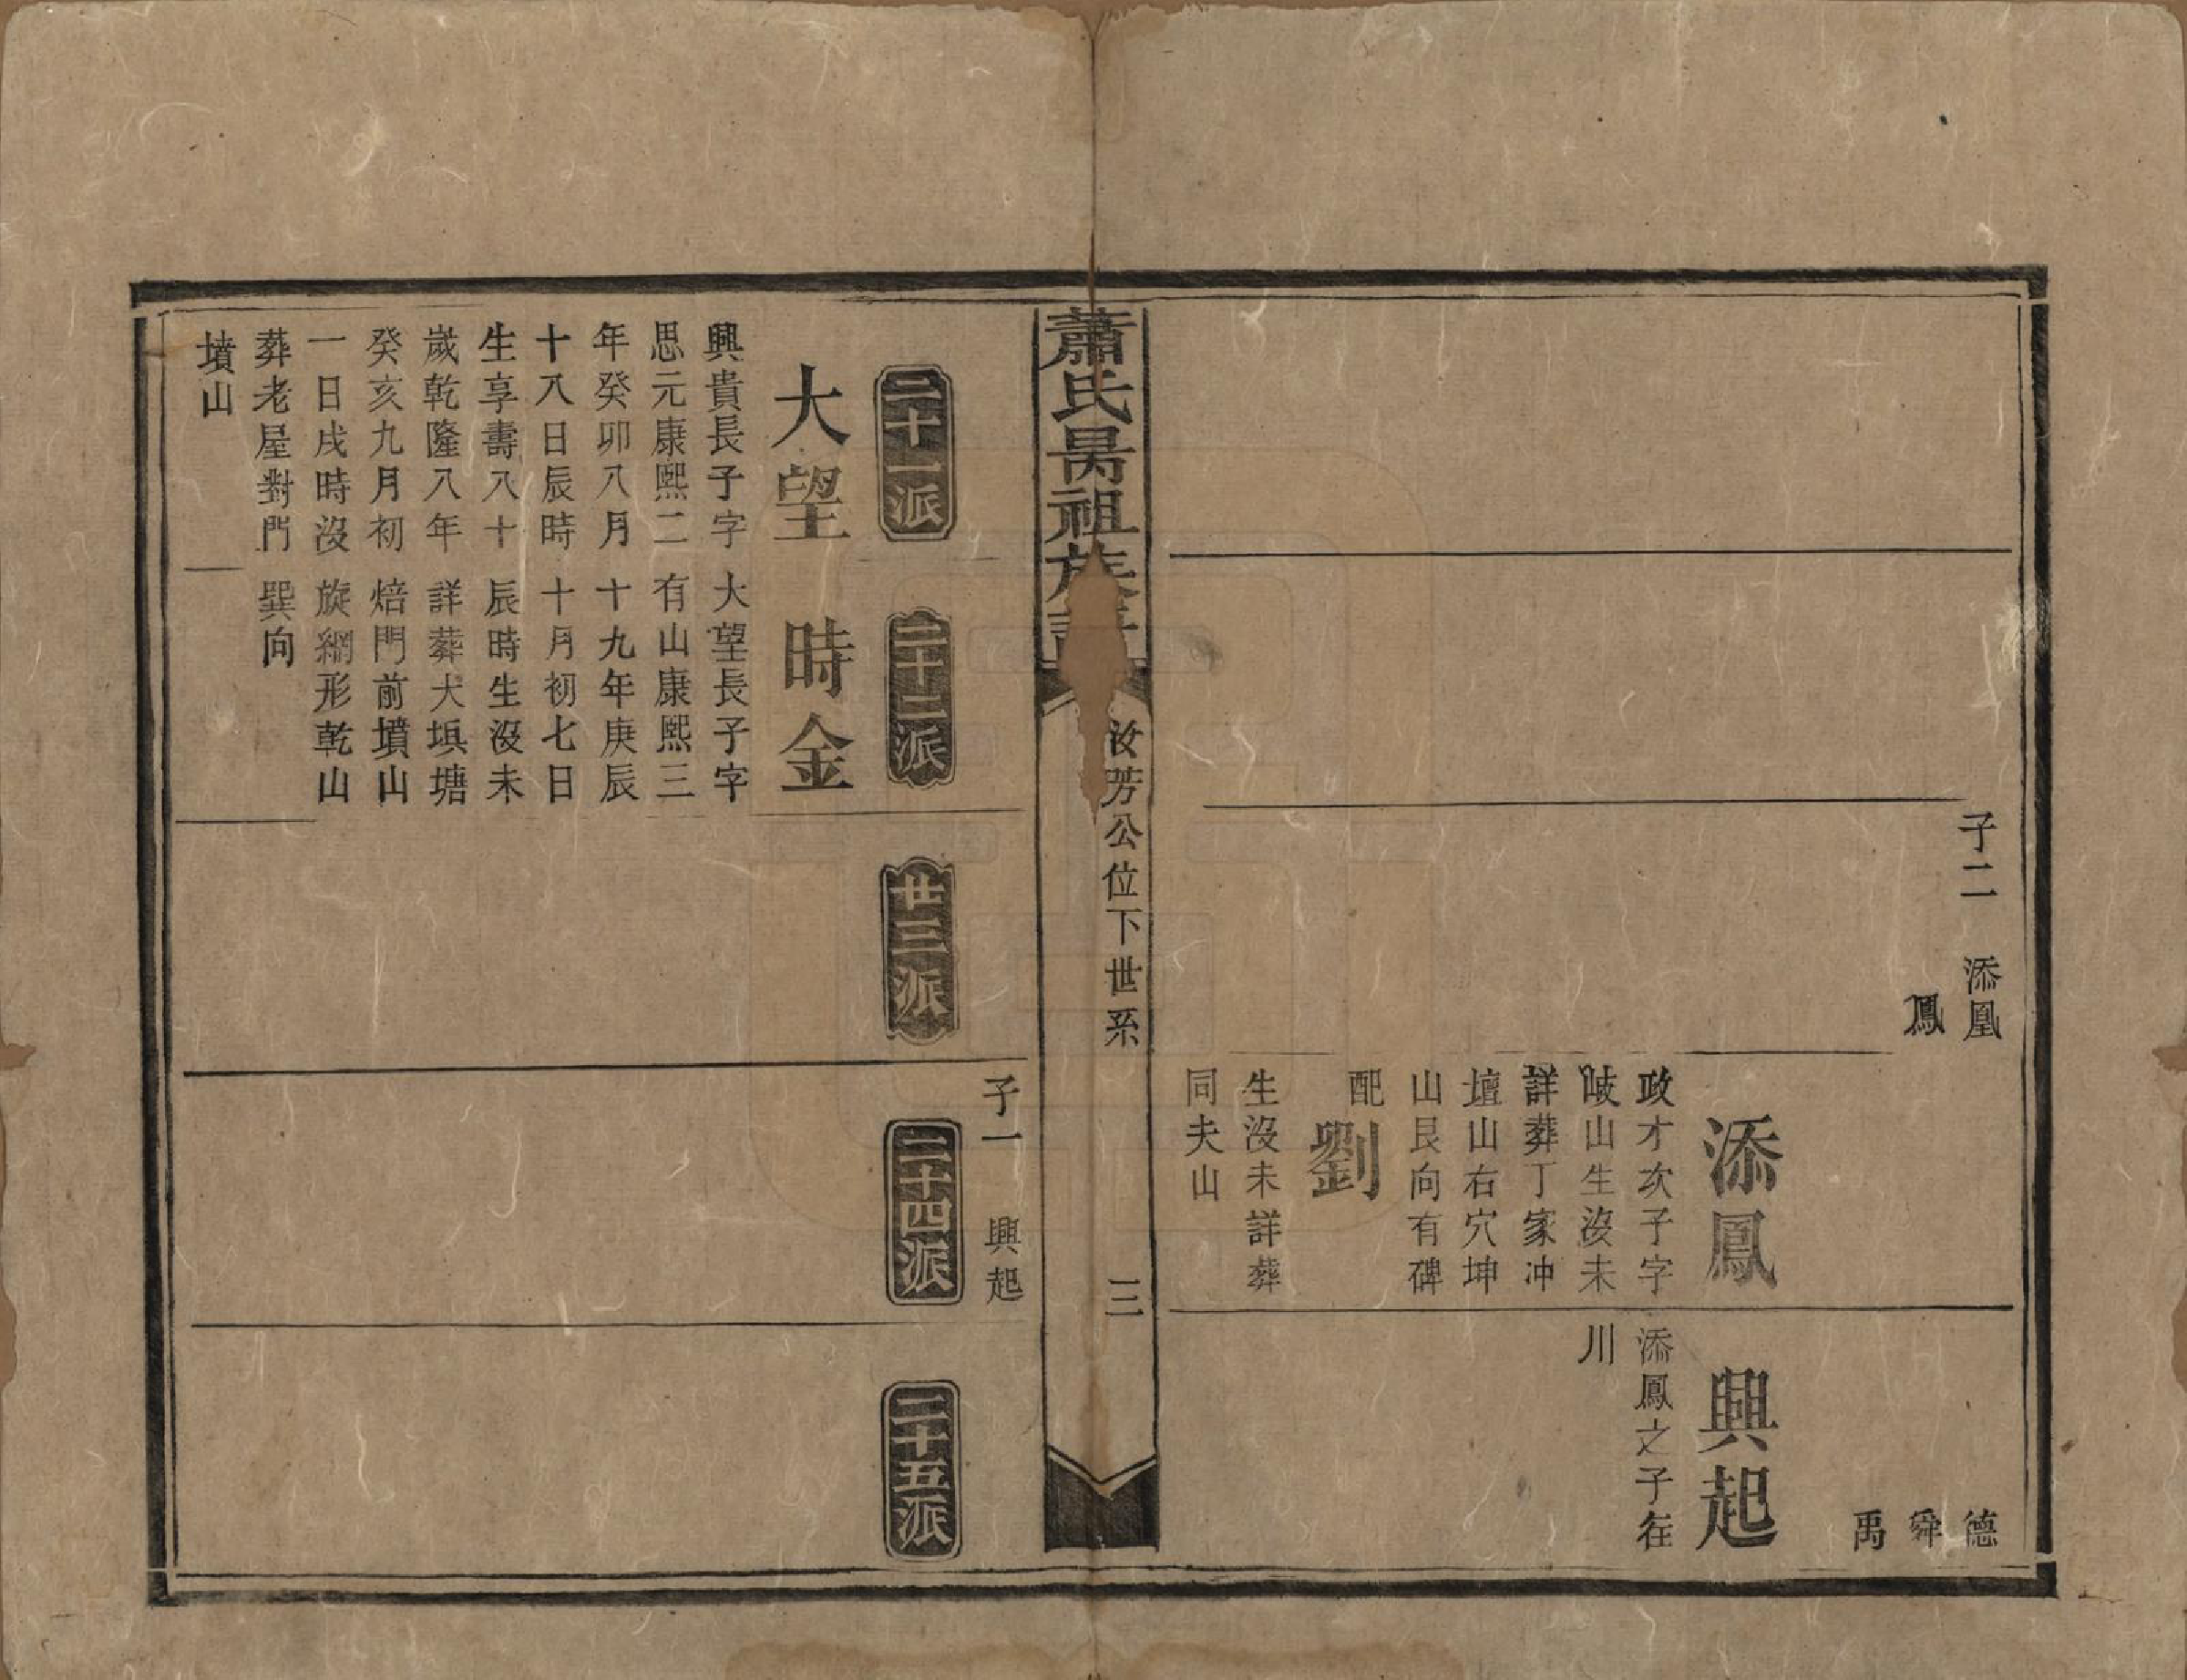 子二　添凰
鳳
添鳳
政才次子字
岐山生沒未
詳葬丁家冲
壇山右穴坤
山艮向有碑
配劉
生沒未詳葬
同夫山
德
舜
禹
興起
添鳳之子在
川
蕭氏昺祖族譜
汝芳公位下世系
三
子一　興起
二十一派
大望
興貴長子字
思元康熙二
年癸卯八月
十八日辰時
生享壽八十
歲乾隆八年
癸亥九月初
一日戌時沒
葬老屋對門
墳山
二十二派
時金
大望長子字
有山康熙三
十九年庚辰
十月初七日
辰時生沒未
詳葬大垻塘
焙門前墳山
旋網形乾山
巽向
廿三派
二十四派
二十五派